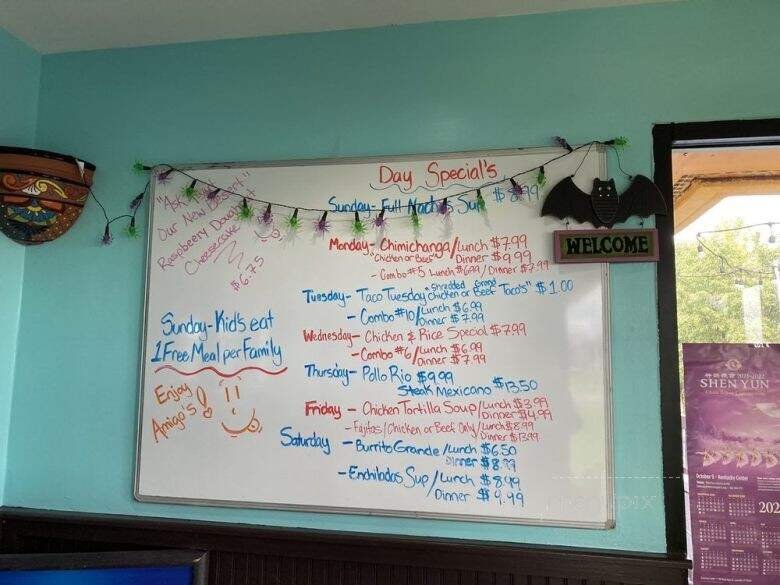 Day Special's
Sunday- Full Nachos Sup $8.99
Monday- Chimichanga/Lunch $7.99
"Chicken or Beef" Dinner $9.99
- Combo #5 Lunch $6.99/Dinner $7.99
Tuesday- Taco Tuesday "Shredded chicken or Ground Beef Taco's" $1.00
- Combo #10/Lunch $6.99
Dinner $7.99
Wednesday- Chicken & Rice Special $7.99
- Combo #6/Lunch $6.99
Dinner $7.99
Thursday- Pollo Rio $9.99
Steak Mexicano $13.50
Friday- Chicken Tortilla Soup/Lunch $3.99
Dinner $4.99
- Fajitas/Chicken or Beef Only/Lunch $8.99
Dinner $13.99
Saturday - Burrito Grande/Lunch $6.50
Dinner $8.99
- Enchiladas Sup/Lunch $8.49
Dinner $9.99
"Ask
Our New Desert"
Raspbeery Donut
Cheesecake
$6.75
Sunday-Kid's eat
1 Free Meal per Family
Enjoy
Amigo's!
WELCOME
2021-2022
SHEN YUN
October 9 - Kentucky Center
202